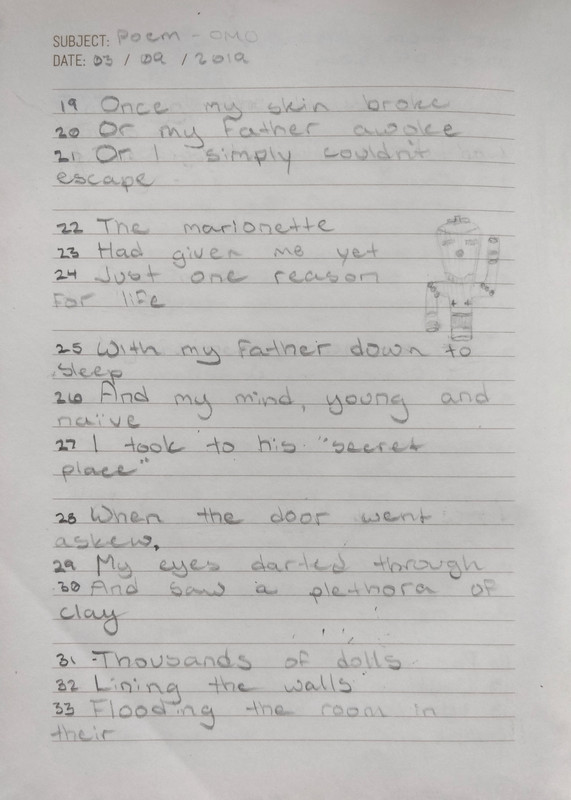 SUBJECT: Poem - OMO
DATE: 03 / 09 / 2019
19 Once my skin broke
20 Or my Father awoke
21 Or I simply couldn't
escape
22 The marionette
23 Had given me yet
24 Just one reason
For life
25 With my Father down to
sleep
26 And my mind, young and
naïve
27 I took to his "secret
place"
28 When the door went
askew,
29 My eyes darted through
30 And saw a plethora of
clay
31 Thousands of dolls
32 Lining the walls
33 Flooding the room in
their